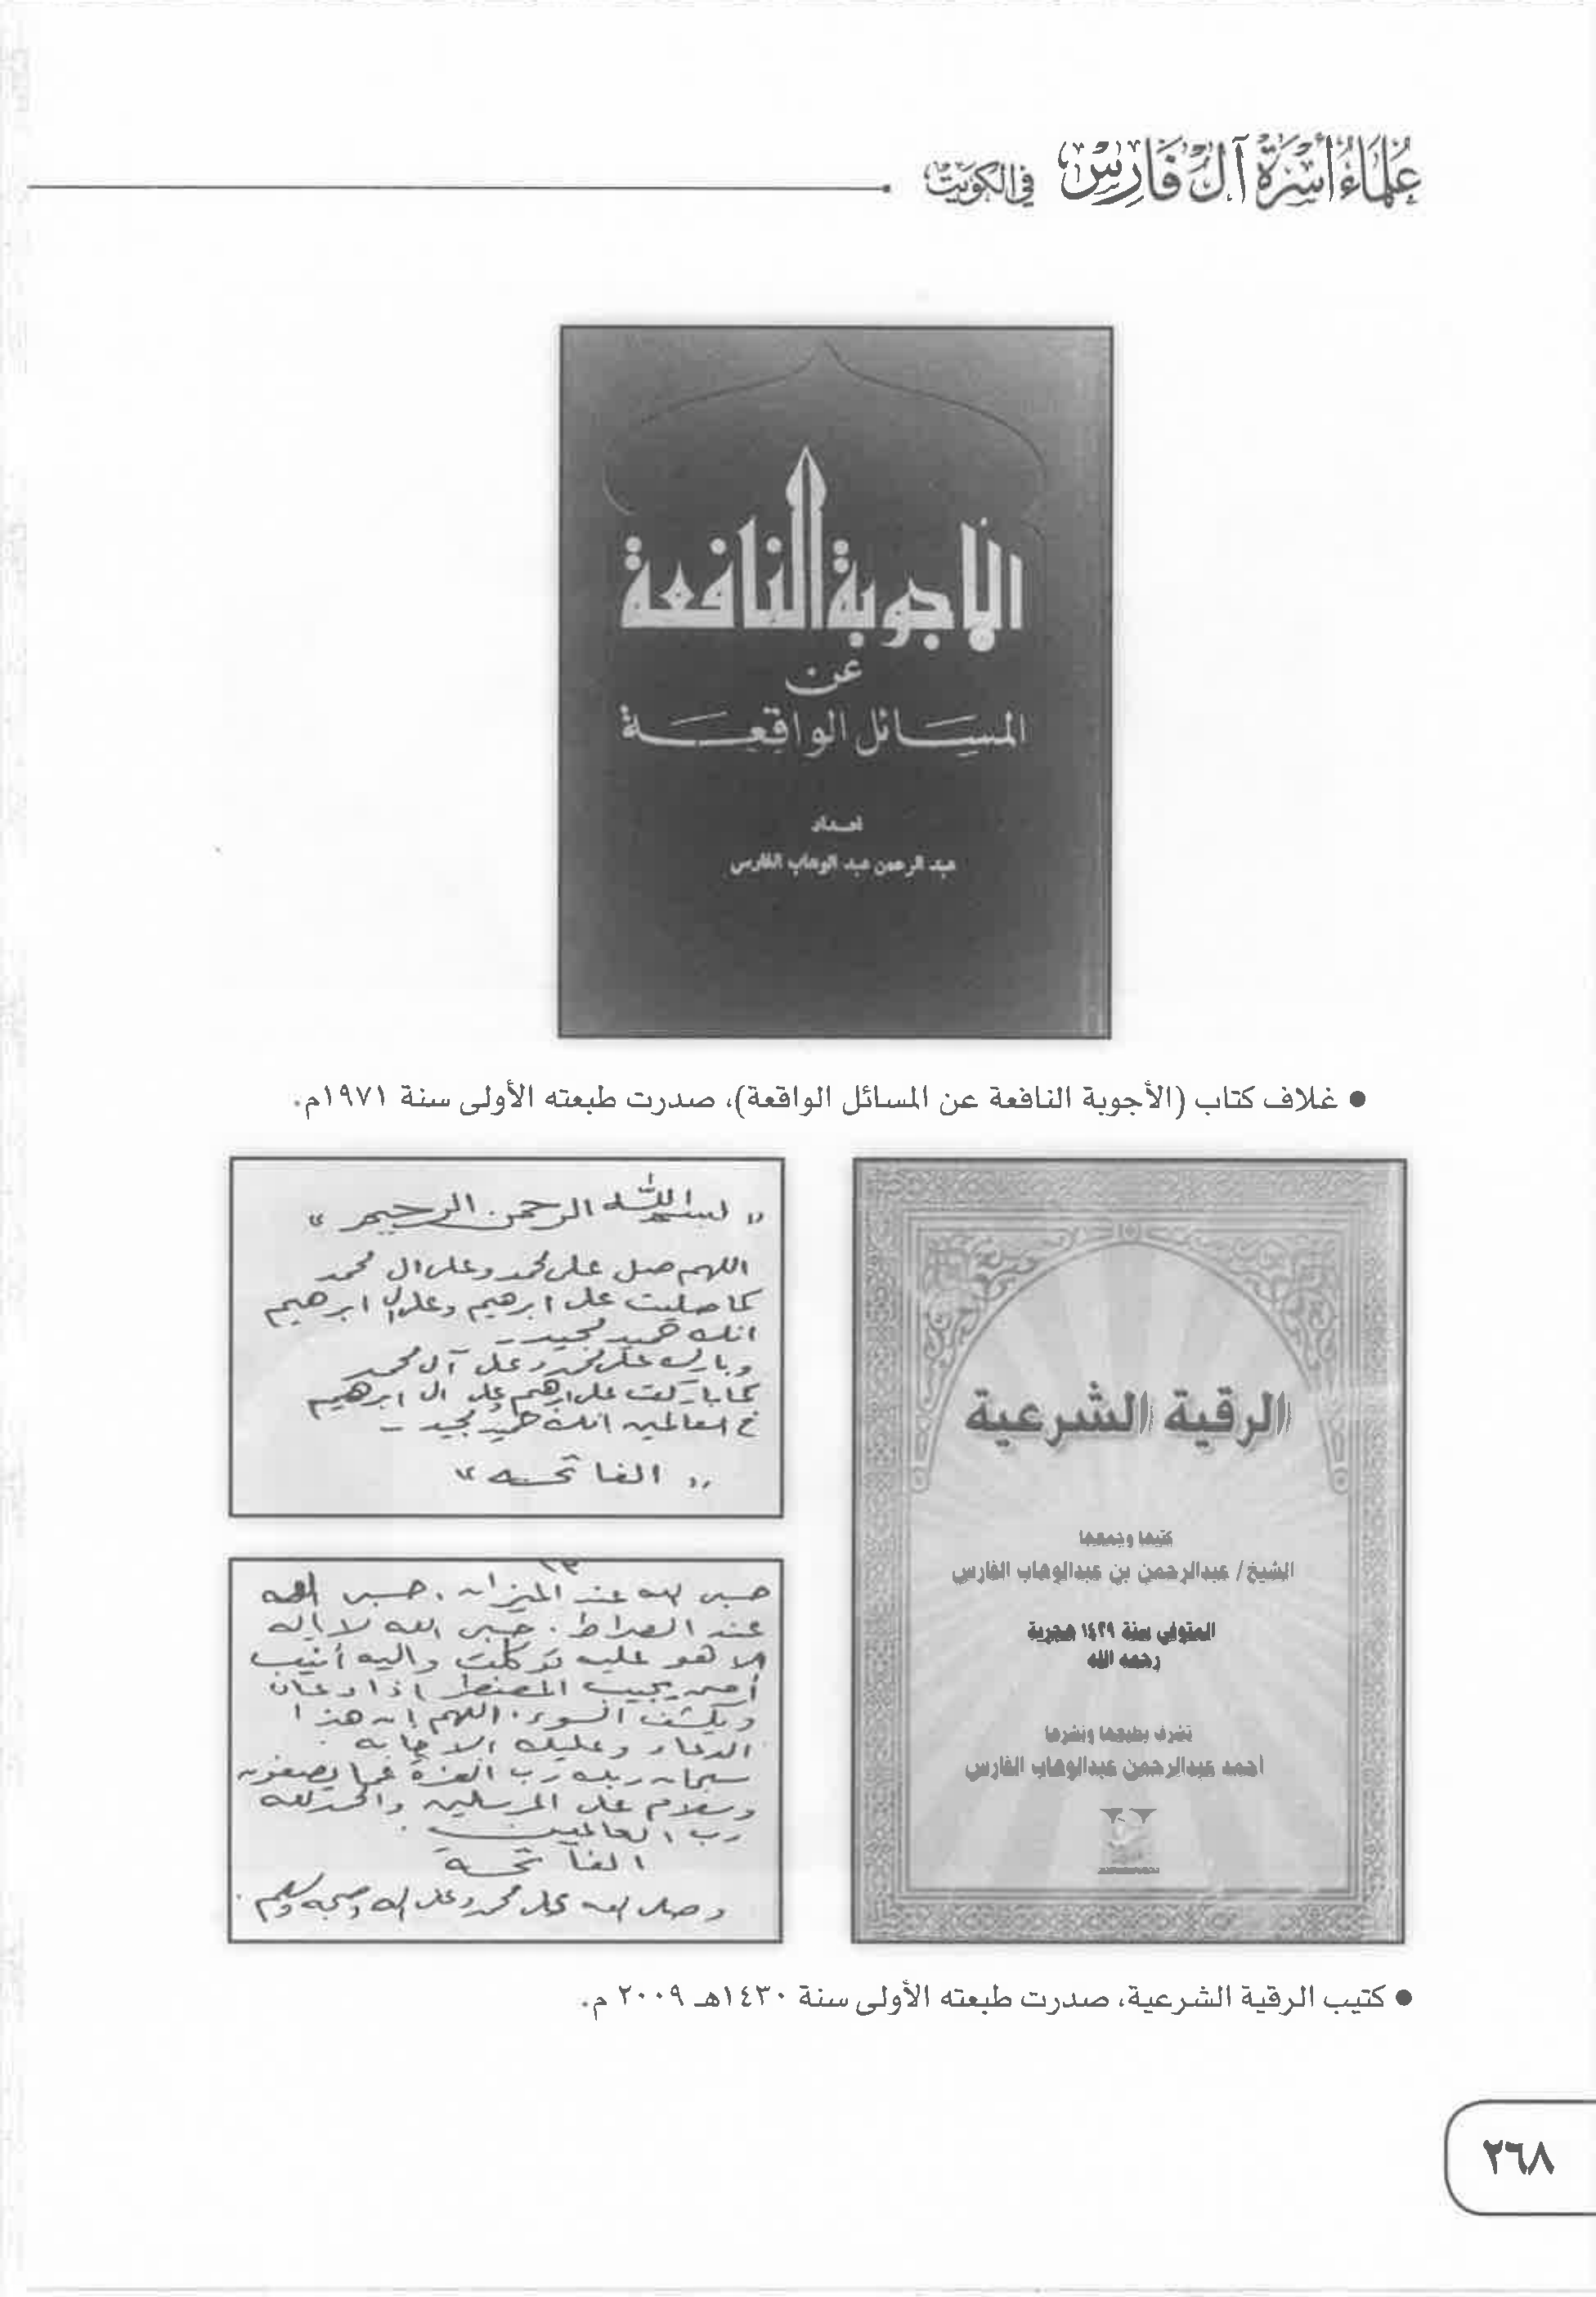 علماء أسرة آل فارس في الكويت
الاجوبة النافعة
عن
المسائل الواقعة
اعداد
عبد الرحمن عبد الوهاب الفارس
● غلاف كتاب (الأجوبة النافعة عن المسائل الواقعة)، صدرت طبعته الأولى سنة ١٩٧١م.
الرقية الشرعية
كتبها وجمعها
الشيخ/ عبدالرحمن بن عبدالوهاب الفارس
المتوفي سنة ١٤٢٩ هجرية
رحمه الله
تشرف بطبعها ونشرها
أحمد عبدالرحمن عبدالوهاب الفارس
" بسم الله الرحمن الرحيم "
اللهم صل على محمد وعلى ال محمد
كما صليت على ابرهيم وعلى ال ابرهيم
انك حميد مجيد -
وبارك على محمد وعلى آل محمد
كما باركت على ابرهيم وعلى ال ابرهيم
في العالمين انك حميد مجيد -
" الفاتحه "
١٣
حسبي الله عند الميزان . حسبي الله
عند الصراط . حسبي الله لا اله
الا هو عليه توكلت واليه أنيب
أمن يجيب المضطر اذا دعاه
ويكشف السوء . اللهم ان هذا
الدعاء وعليك الاجابه .
سبحان ربك رب العزة عما يصفون
وسلام على المرسلين والحمد لله
رب العالمين .
الفاتحة
وصلى الله على محمد وعلى اله وصحبه وسلم .
● كتيب الرقية الشرعية، صدرت طبعته الأولى سنة ١٤٣٠هـ ٢٠٠٩ م.
٢٦٨